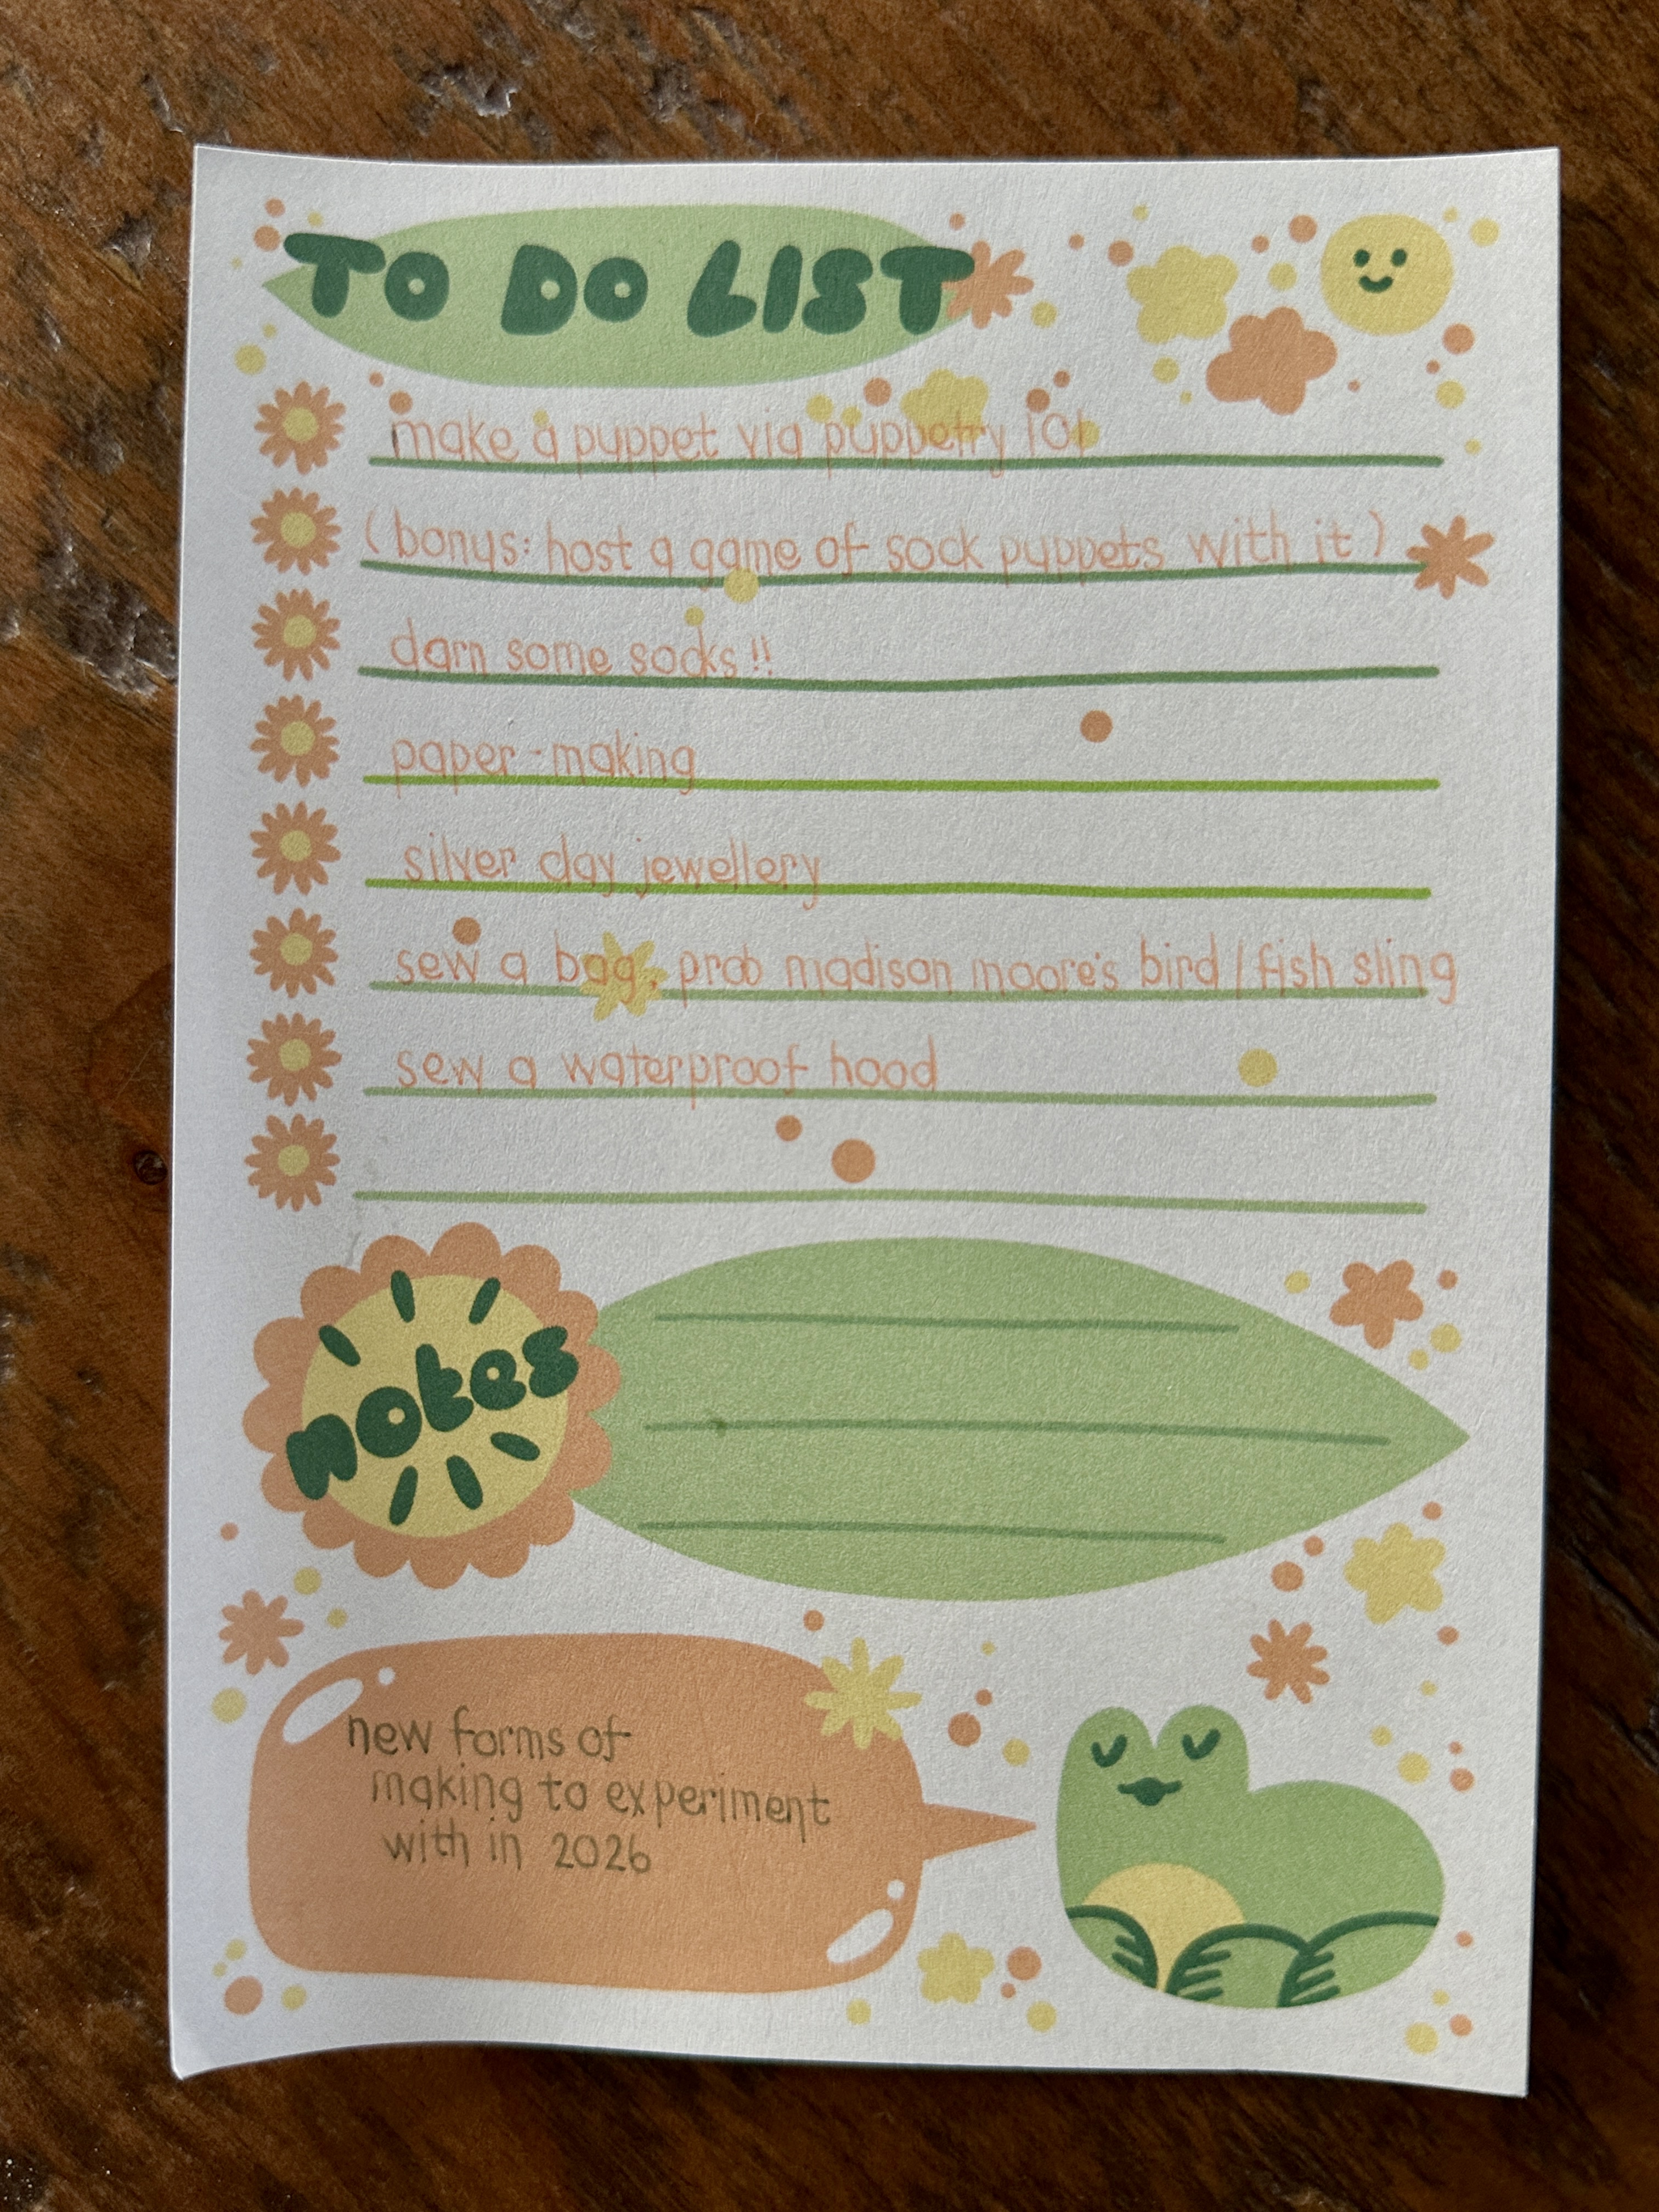 TO DO LIST
make a puppet via puppetry 101
(bonus: host a game of sock puppets with it)
darn some socks!!
paper-making
silver clay jewellery
sew a bag, prob madison moore's bird/fish sling
sew a waterproof hood
notes
new forms of
making to experiment
with in 2026